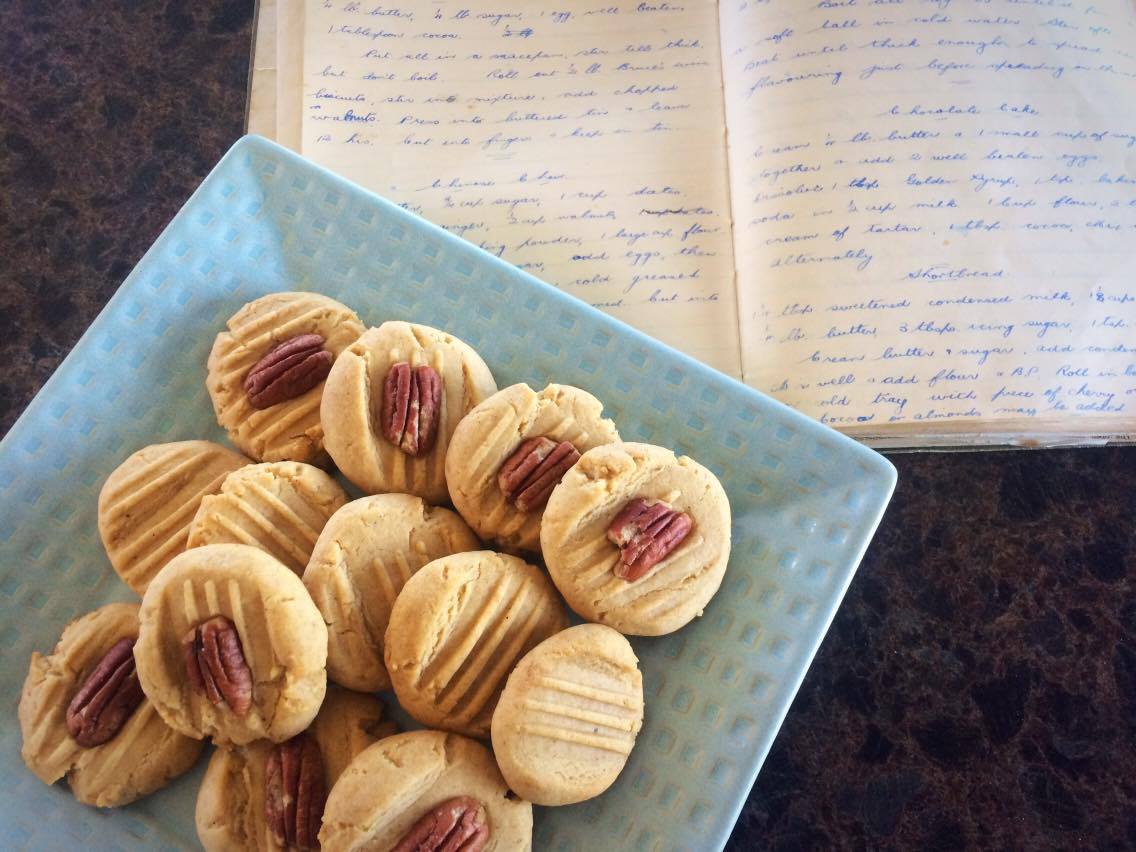 lb. butter, ¼ lb. sugar, 1 egg, well beaten,
1 tablespoon cocoa.
Put all in a saucepan, stir till thick
but don't boil. Roll out ½ lb. Bruce's wine
biscuits, stir into mixture, add chopped
walnuts. Press into buttered tin & leave
12 hrs. Cut into fingers & keep in tin.
Chinese Chew
sugar, 1 cup dates,
½ cup walnuts
powder, 1 large cup flour
add eggs, then
cold greased
cut into
a soft ball in cold water
Beat until thick enough to spread
flavouring just before spreading on
Chocolate Cake
Cream ¼ lb. butter & 1 small cup of
together & add 2 well beaten eggs
1 tbsp Golden Syrup, 1 tsp.
soda in ½ cup milk 1 cup flour, 2
cream of tartar, 1 tbsp cocoa,
alternately
Shortbread
tbsp sweetened condensed milk,
¼ lb. butter, 3 tbsps icing sugar, 1 tsp.
Cream butter & sugar, add
well & add flour & B.P. Roll in
cold tray with piece of cherry
cocoa or almonds may be added